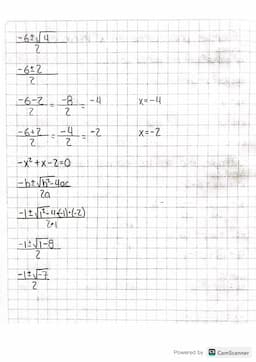 -6±√4
2
-6±2
2
-6-2 = -8 = -4 x=-4
2 2
-6+2 = -4 = -2 x=-2
2 2
-x²+x-2=0
-b±√b²-4ac
2a
-1±√1²-4(-1)(-2)
2•1
-1±√1-8
2
-1±√-7
2
Powered by CS CamScanner